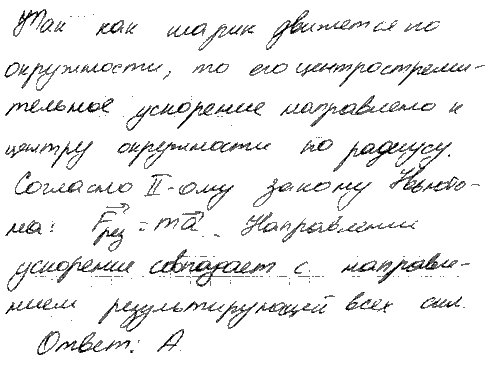 Так как шарик движется по
окружности, то его центростреми-
тельное ускорение направлено к
центру окружности по радиусу.
Согласно II-ому закону Ньюто-
на: F⃗рез = ma⃗. Направлении
ускорение совпадает с направле-
нием результирующей всех сил.
Ответ: А